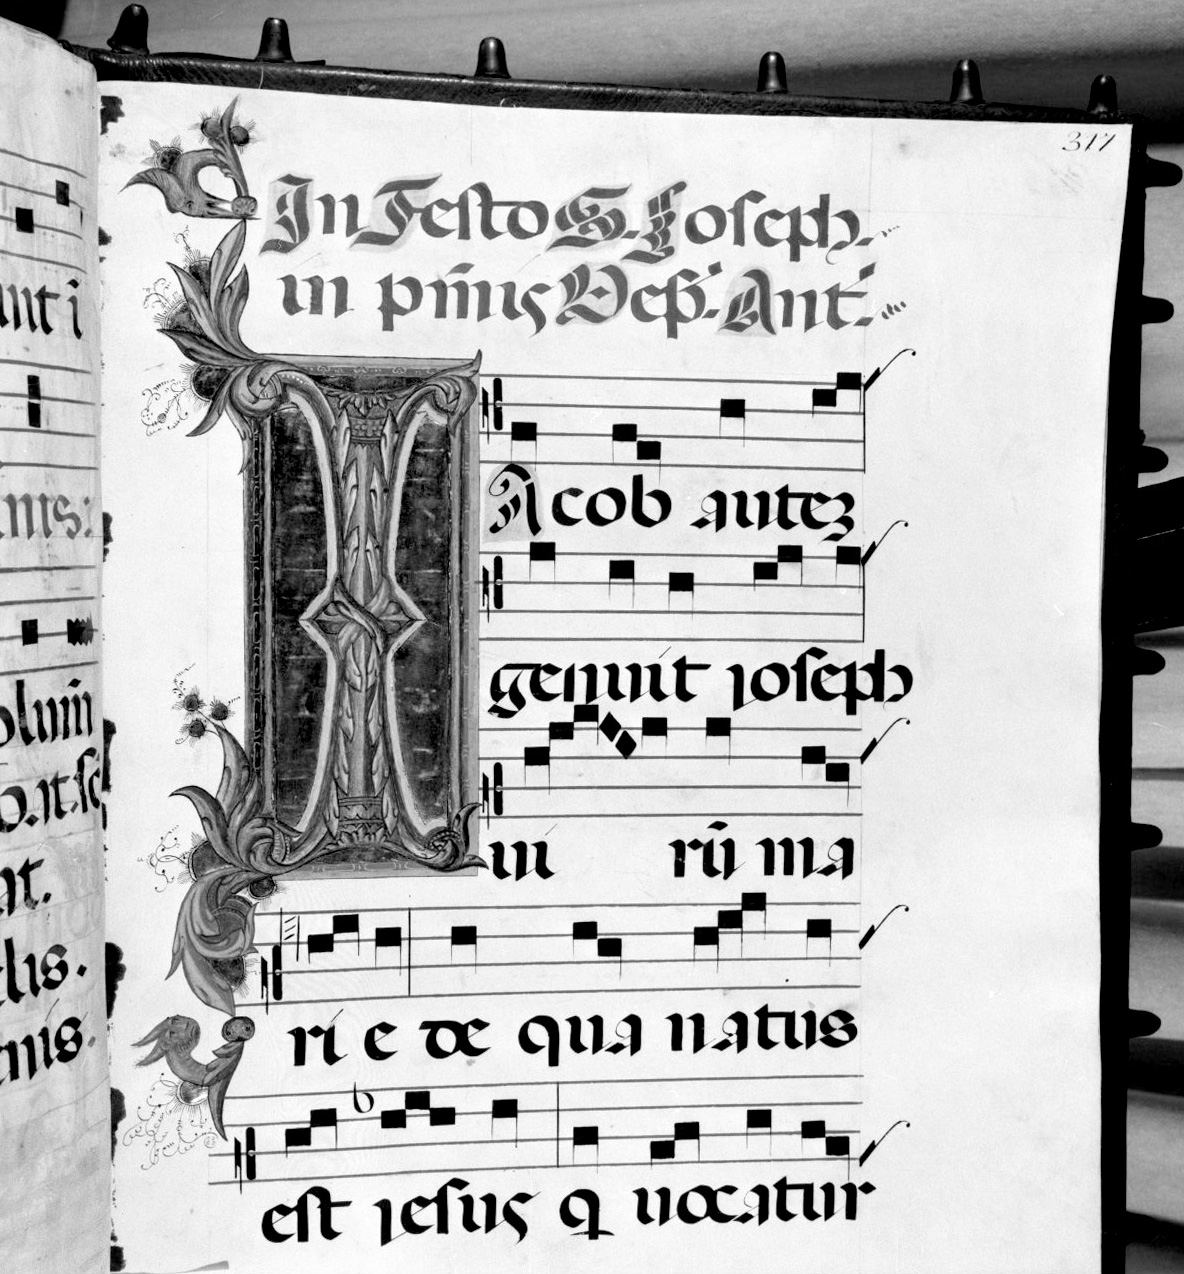 317
In Festo S. Joseph.
in prĩis Vesp̃. Ant.
IAcob autez
genuit ioseph
ui rũ ma
ri e de qua natus
est iesus q uocatur
unt i
nis:
olum̃
at.
elis.
enis.